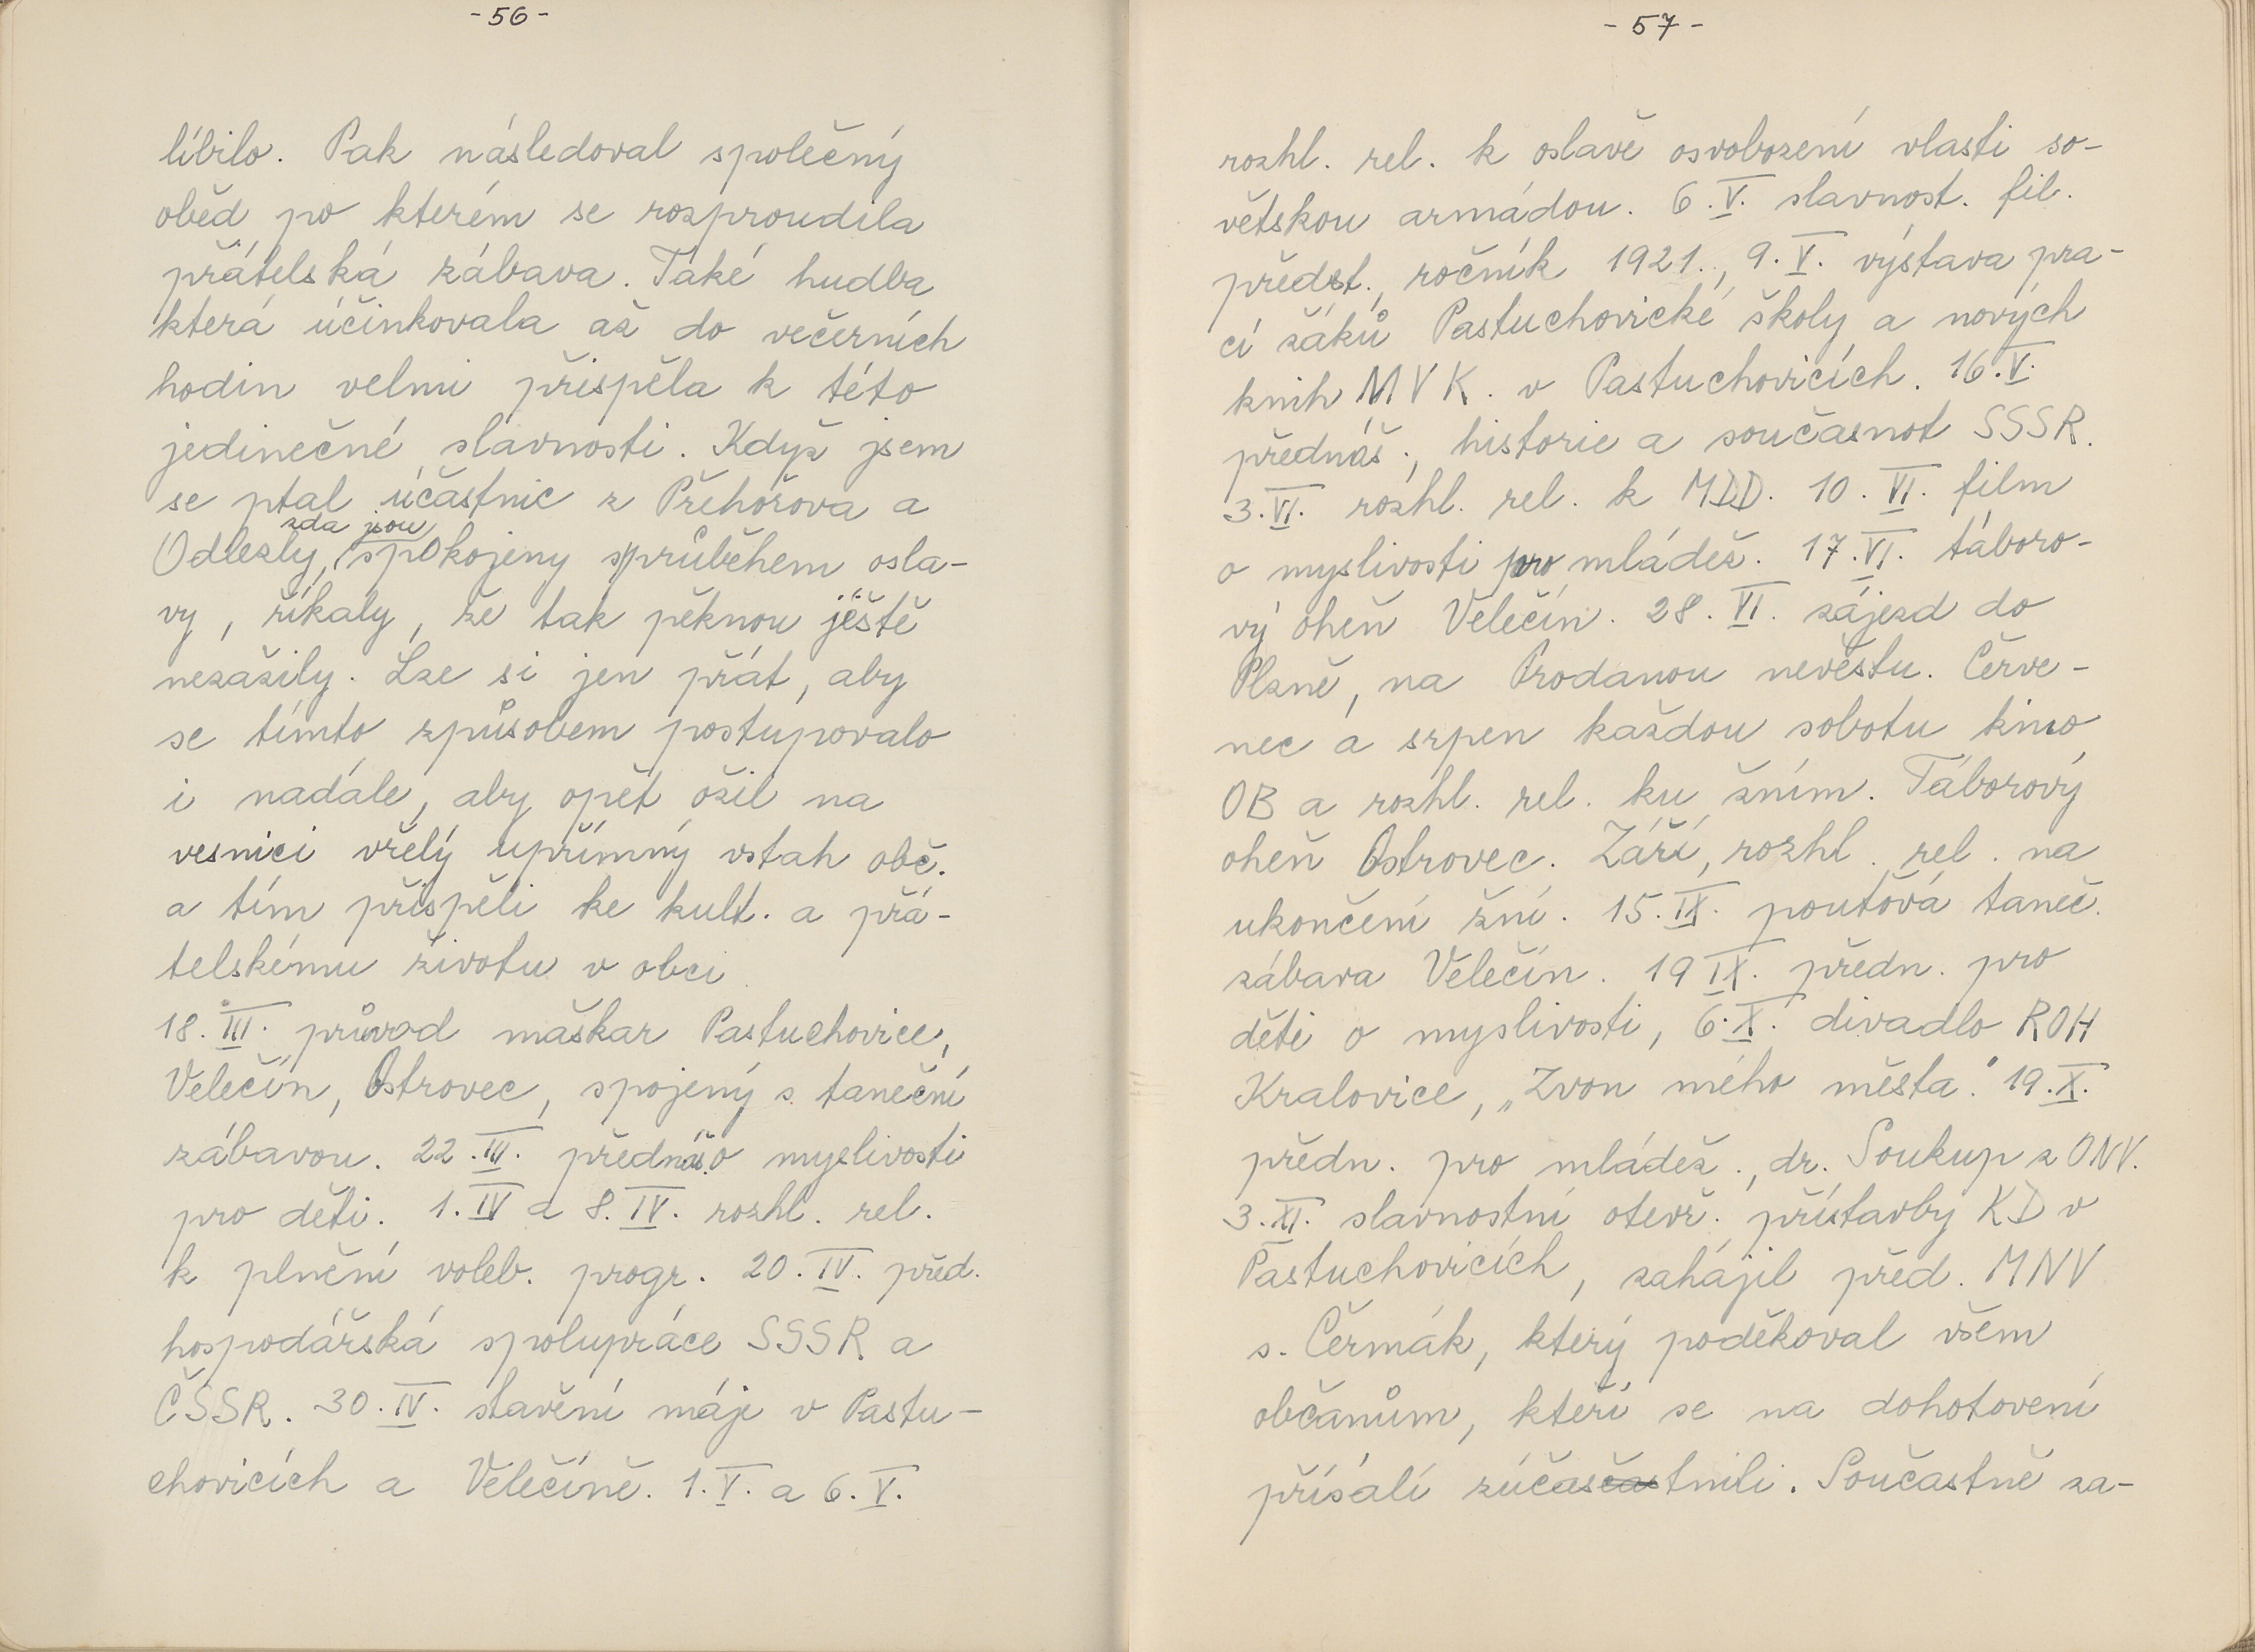 - 56 -
líbilo. Pak následoval společný
oběd po kterém se rozproudila
přátelská zábava. Také hudba
která účinkovala až do večerních
hodin velmi přispěla k této
jedinečné slavnosti. Když jsem
se ptal účastnic z Přehořova a
zda jsou
Odlezly, spokojeny s průběhem osla-
vy, říkaly, že tak pěknou ještě
nezažily. Lze si jen přát, aby
se tímto způsobem postupovalo
i nadále, aby opět ožil na
vesnici vřelý upřímný vstah obč.
a tím přispěli ke kult. a přá-
telskému životu v obci
18. III. průvod maškar Pastuchovice,
Velečín, Ostrovec, spojený s taneční
zábavou. 22. III. přednáš. o myslivosti
pro děti. 1. IV a 8. IV. rozhl. rel.
k plnění voleb. progr. 20. IV. před.
hospodářská spolupráce SSSR a
ČSSR. 30. IV. stavění máje v Pastu-
chovicích a Velečíně. 1. V. a 6. V.
- 57 -
rozhl. rel. k oslavě osvobození vlasti so-
větskou armádou. 6. V. slavnost. fil.
předst., ročník 1921., 9. V. výstava pra-
cí žáků Pastuchovické školy a nových
knih MVK. v Pastuchovicích. 16. V.
přednáš., historie a současnot SSSR.
3. VI. rozhl. rel. k MDD. 10. VI. film
o myslivosti pro mládež. 17. VI. táboro-
vý oheň Velečín. 28. VI. zájezd do
Plzně, na Prodanou nevěstu. Červe-
nec a srpen každou sobotu kino
OB a rozhl. rel. ku žním. Táborový
oheň Ostrovec. Září, rozhl. rel. na
ukončení žní. 15. IX. pouťová taneč.
zábava Velečín. 19 IX. předn. pro
děti o myslivosti, 6. X. divadlo ROH
Kralovice, „Zvon mého města." 19. X.
předn. pro mládež., dr. Soukup z ONV.
3. XI. slavnostní otevř. přístavby KD v
Pastuchovicích, zahájil před. MNV
s. Čermák, který poděkoval všem
občanům, kteří se na dohotovení
přísálí zúčasčastnili. Součastně za-